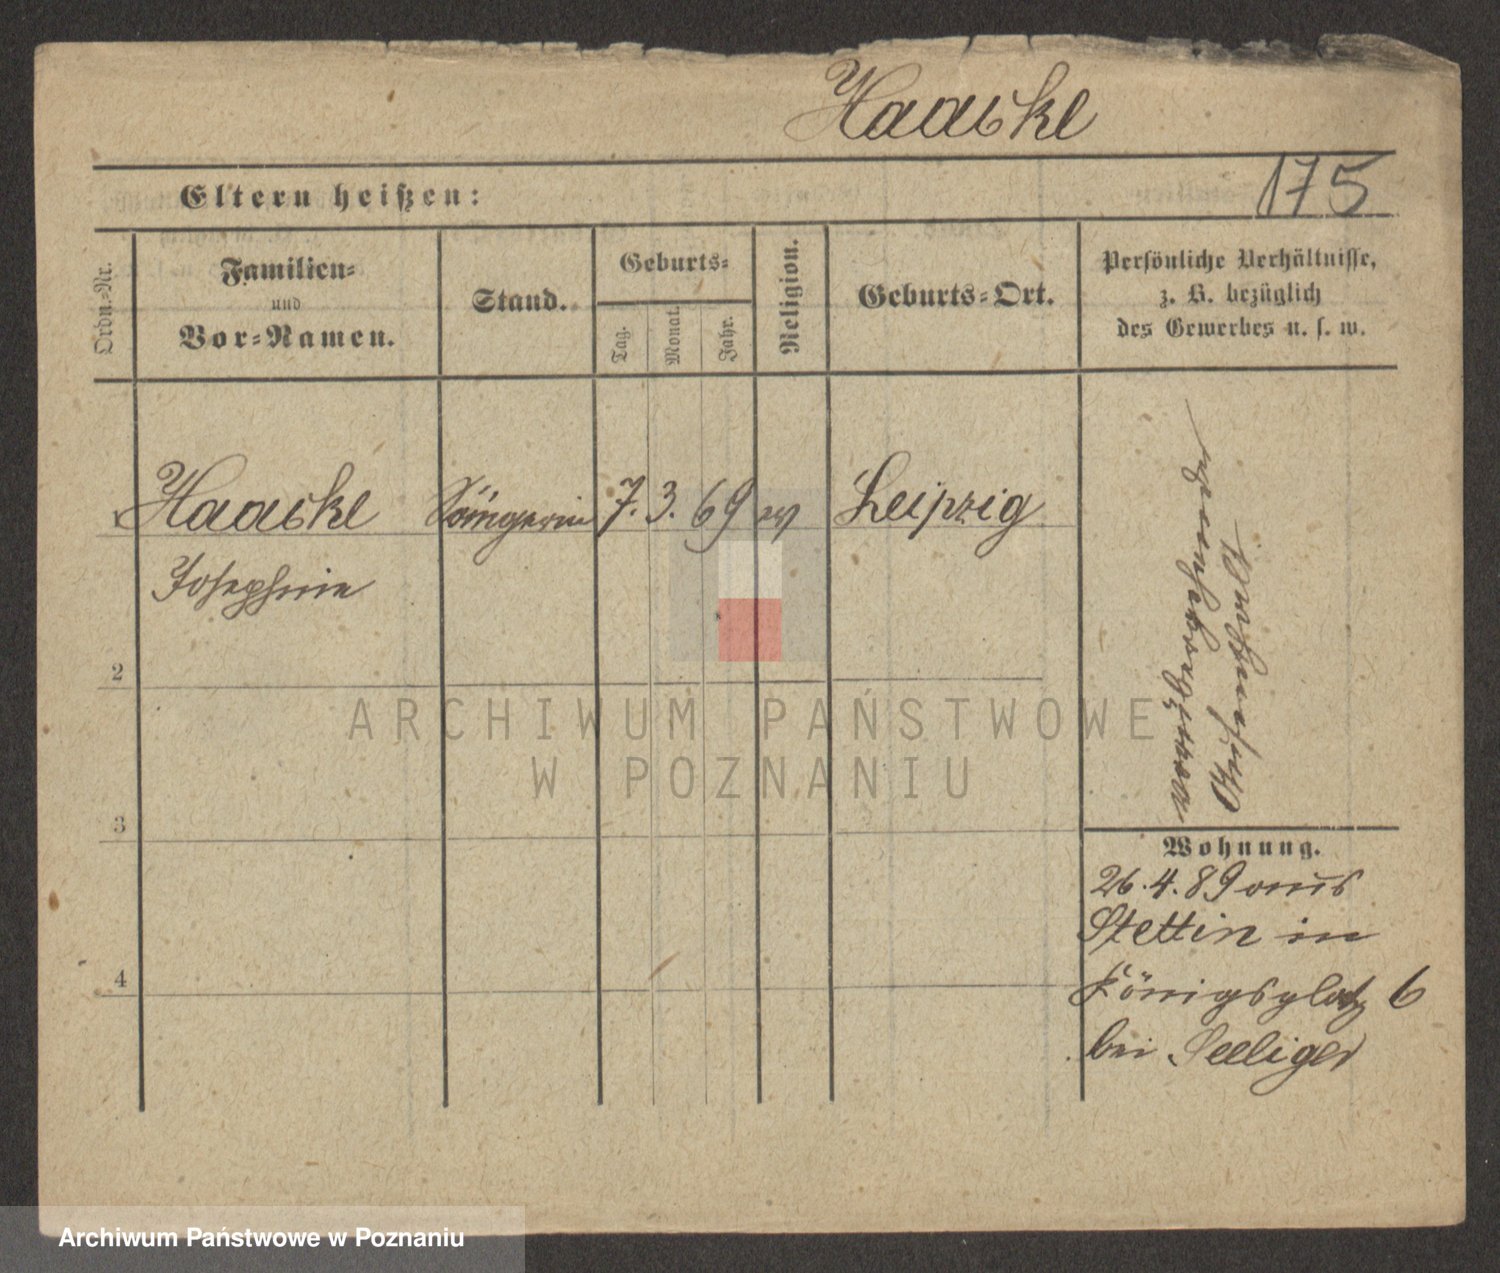 Haaske
175
Eltern heißen:
Ordn.-Nr.
Familien-
und
Vor-Namen.
Stand.
Geburts-
Tag.
Monat.
Jahr.
Religion.
Geburts-Ort.
Persönliche Verhältnisse,
z. B. bezüglich
des Gewerbes u. s. w.
1 Haaske Sängerin 7. 3. 69 ev Leipzig
Josephine
2
3
4
Wohnung.
26. 4. 89 aus
Stettin in
Königsplatz 6
bei Seeliger
ARCHIWUM PAŃSTWOWE
W POZNANIU
Archiwum Państwowe w Poznaniu